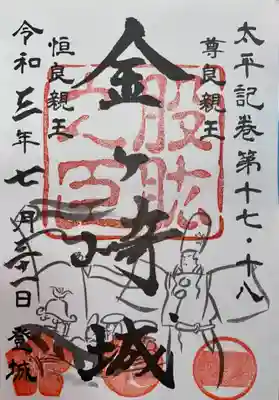 太平記巻第十七・十八
尊良親王
金ヶ崎城
恒良親王
令和三年七月三十一日登城
股肱之臣